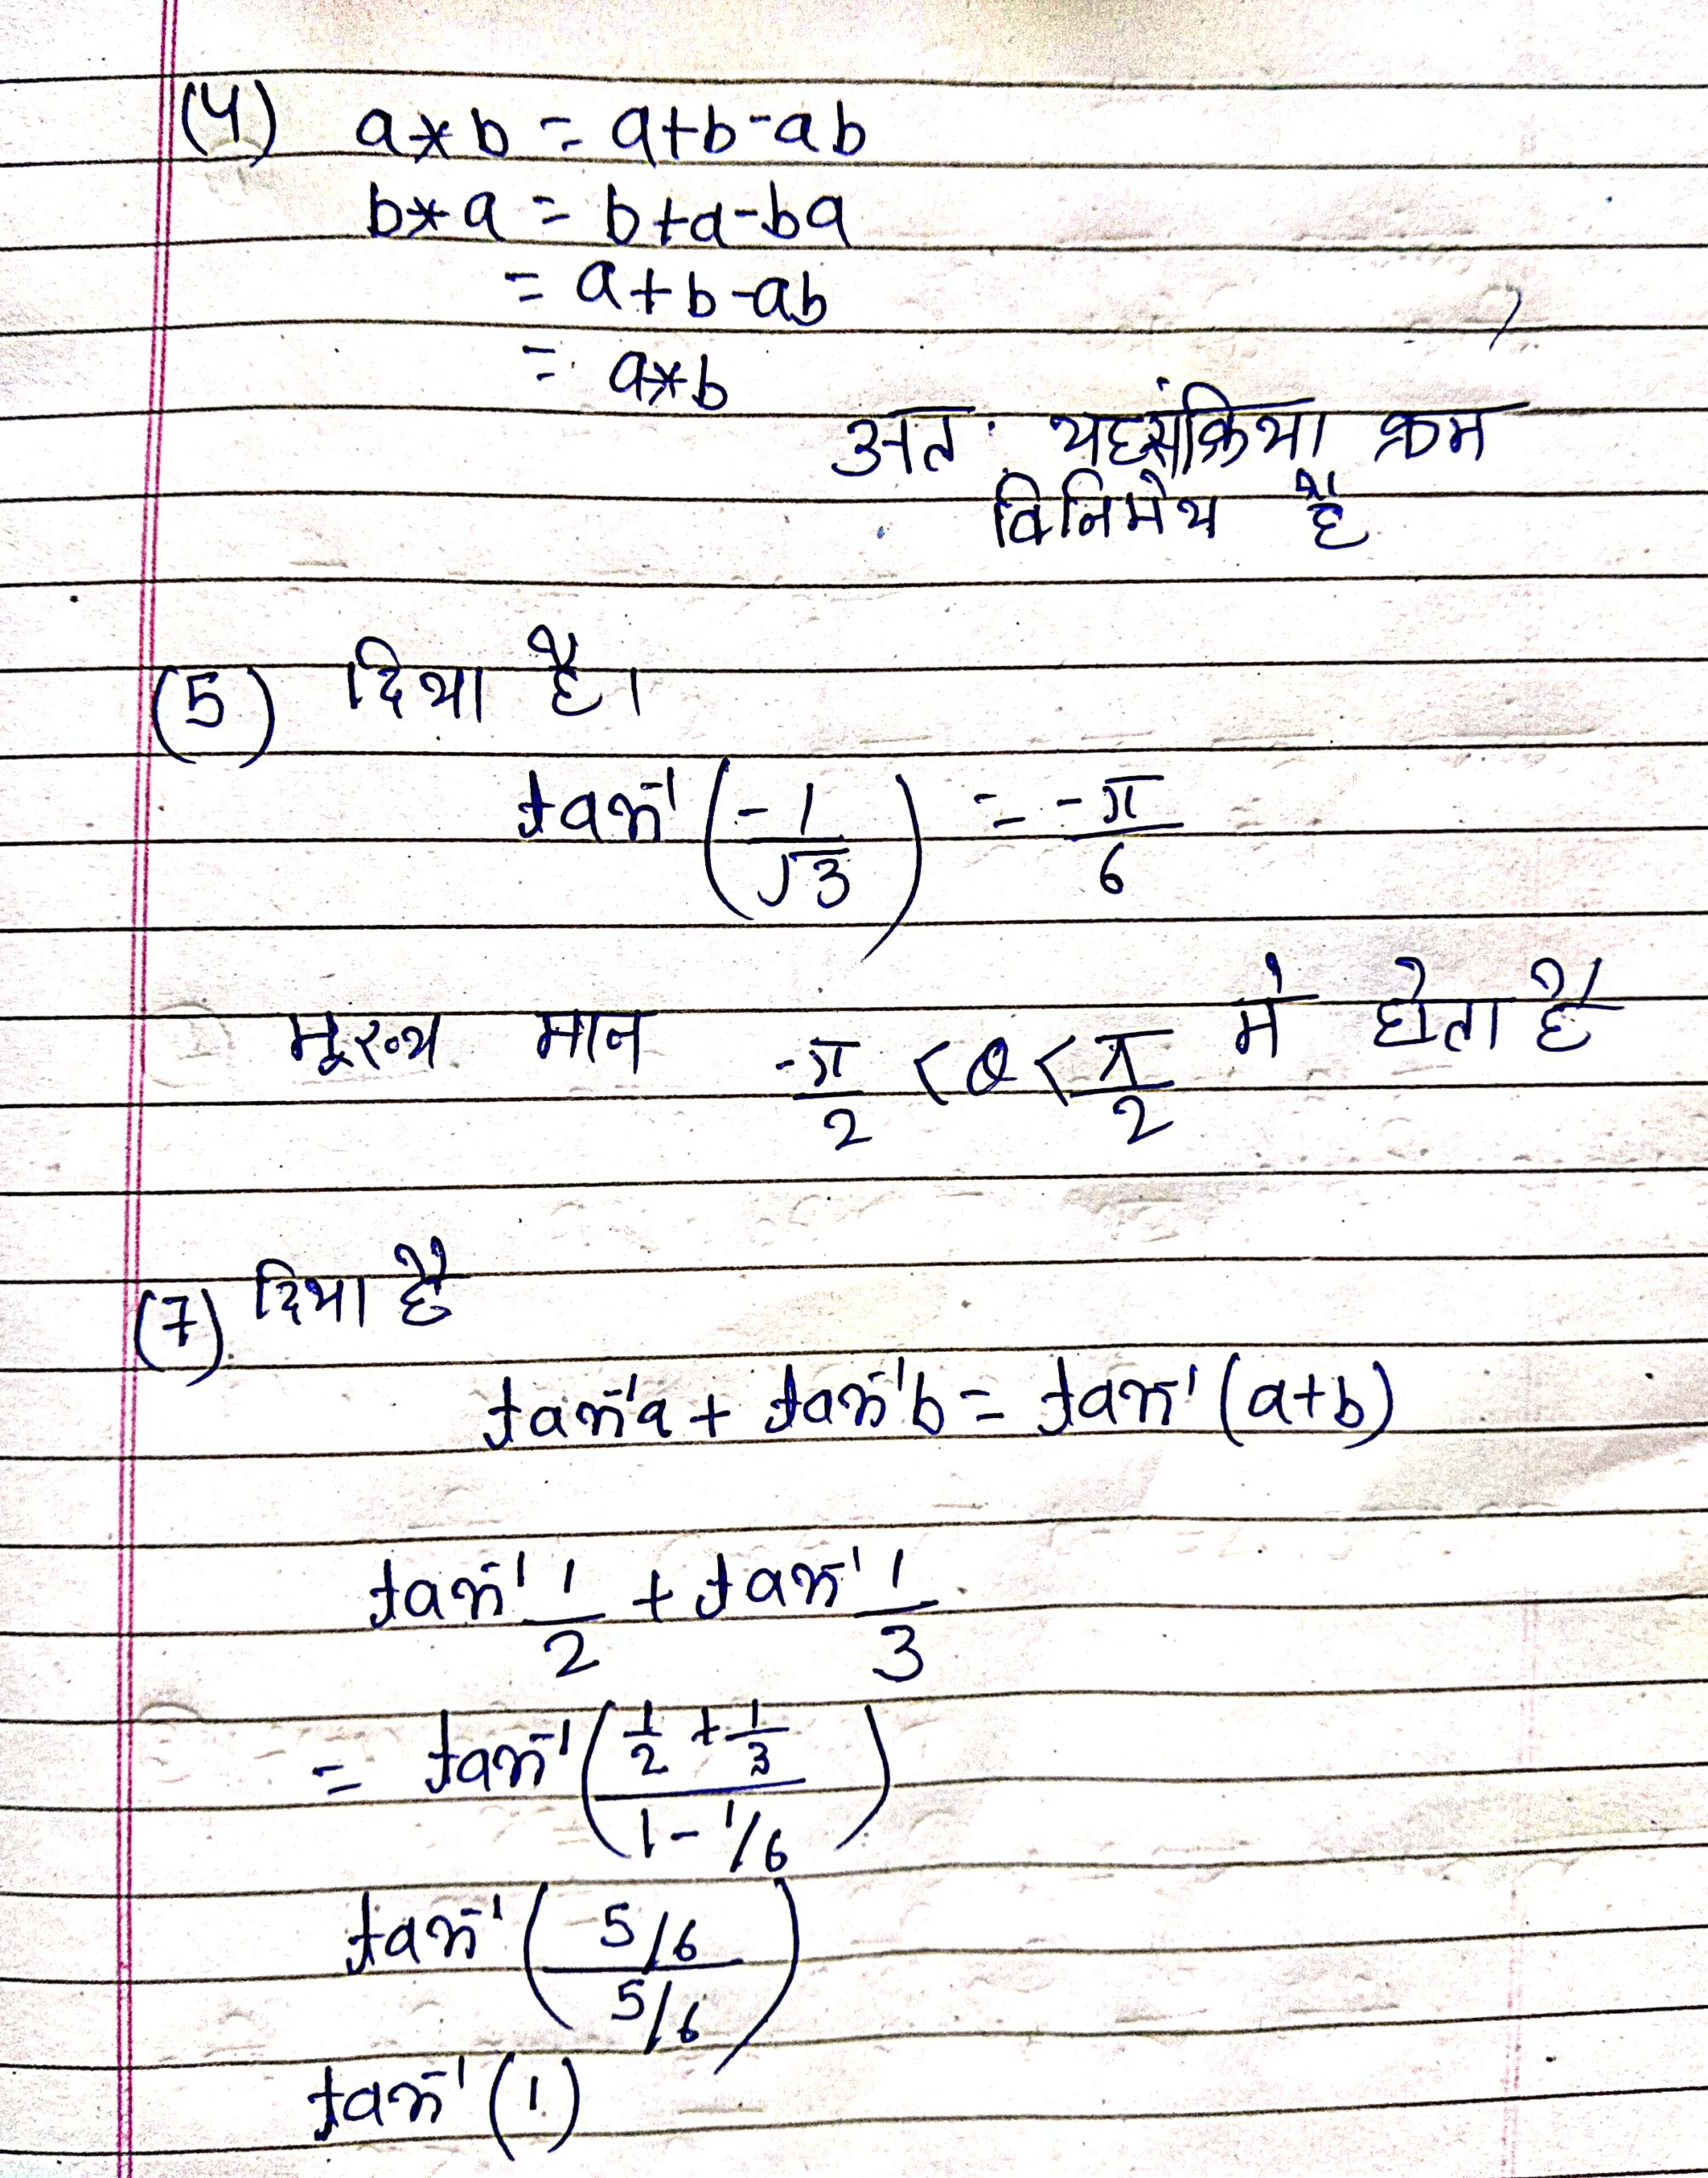 (4) a*b = a+b-ab
b*a = b+a-ba
= a+b-ab
= a*b
अत: यह संक्रिया क्रम
विनिमेय है
(5) दिया है।
tan⁻¹(-1/√3) = -π/6
मुख्य मान -π/2 < θ < π/2 में होता है
(7) दिया है
tan⁻¹a + tan⁻¹b = tan⁻¹(a+b)
tan⁻¹ 1/2 + tan⁻¹ 1/3
= tan⁻¹((1/2 + 1/3)/(1 - 1/6))
tan⁻¹((5/6)/(5/6))
tan⁻¹(1)